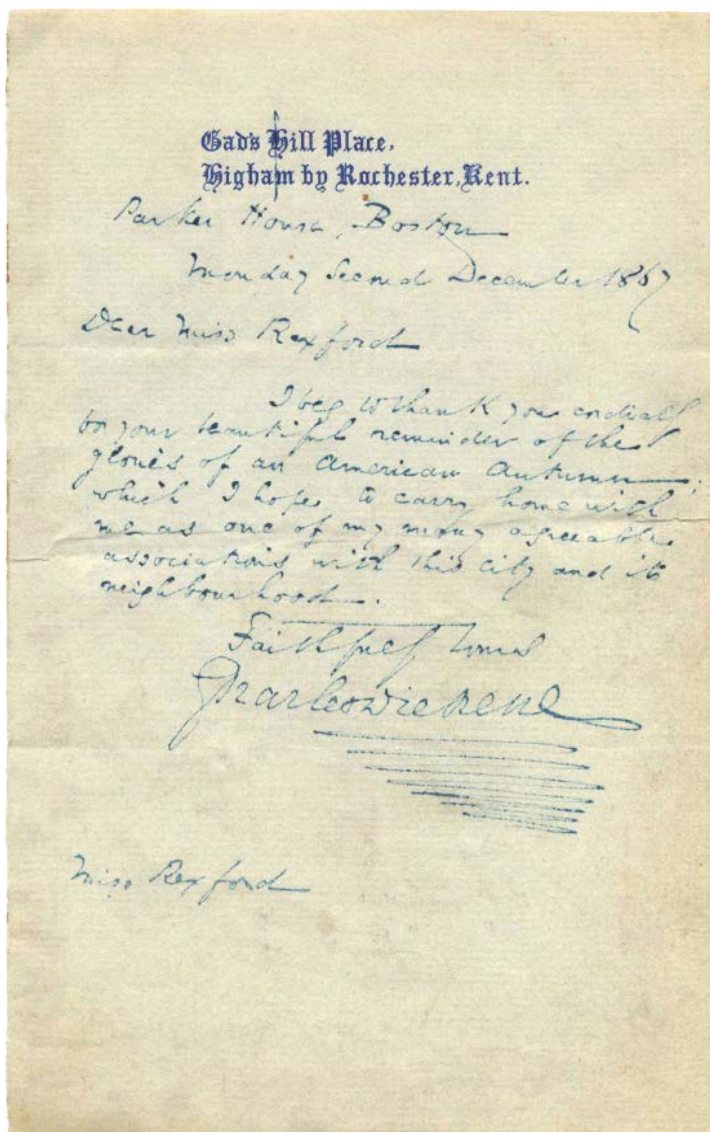 Gad's Hill Place,
Higham by Rochester, Kent.
Parker House, Boston
Monday Second December 1867
Dear Miss Rexford
I beg to thank you cordially
for your beautiful reminder of the
glories of an American Autumn
which I hope to carry home with
me as one of my many agreeable
associations with this city and its
neighbourhood.
Faithfully Yours
Charles Dickens
Miss Rexford